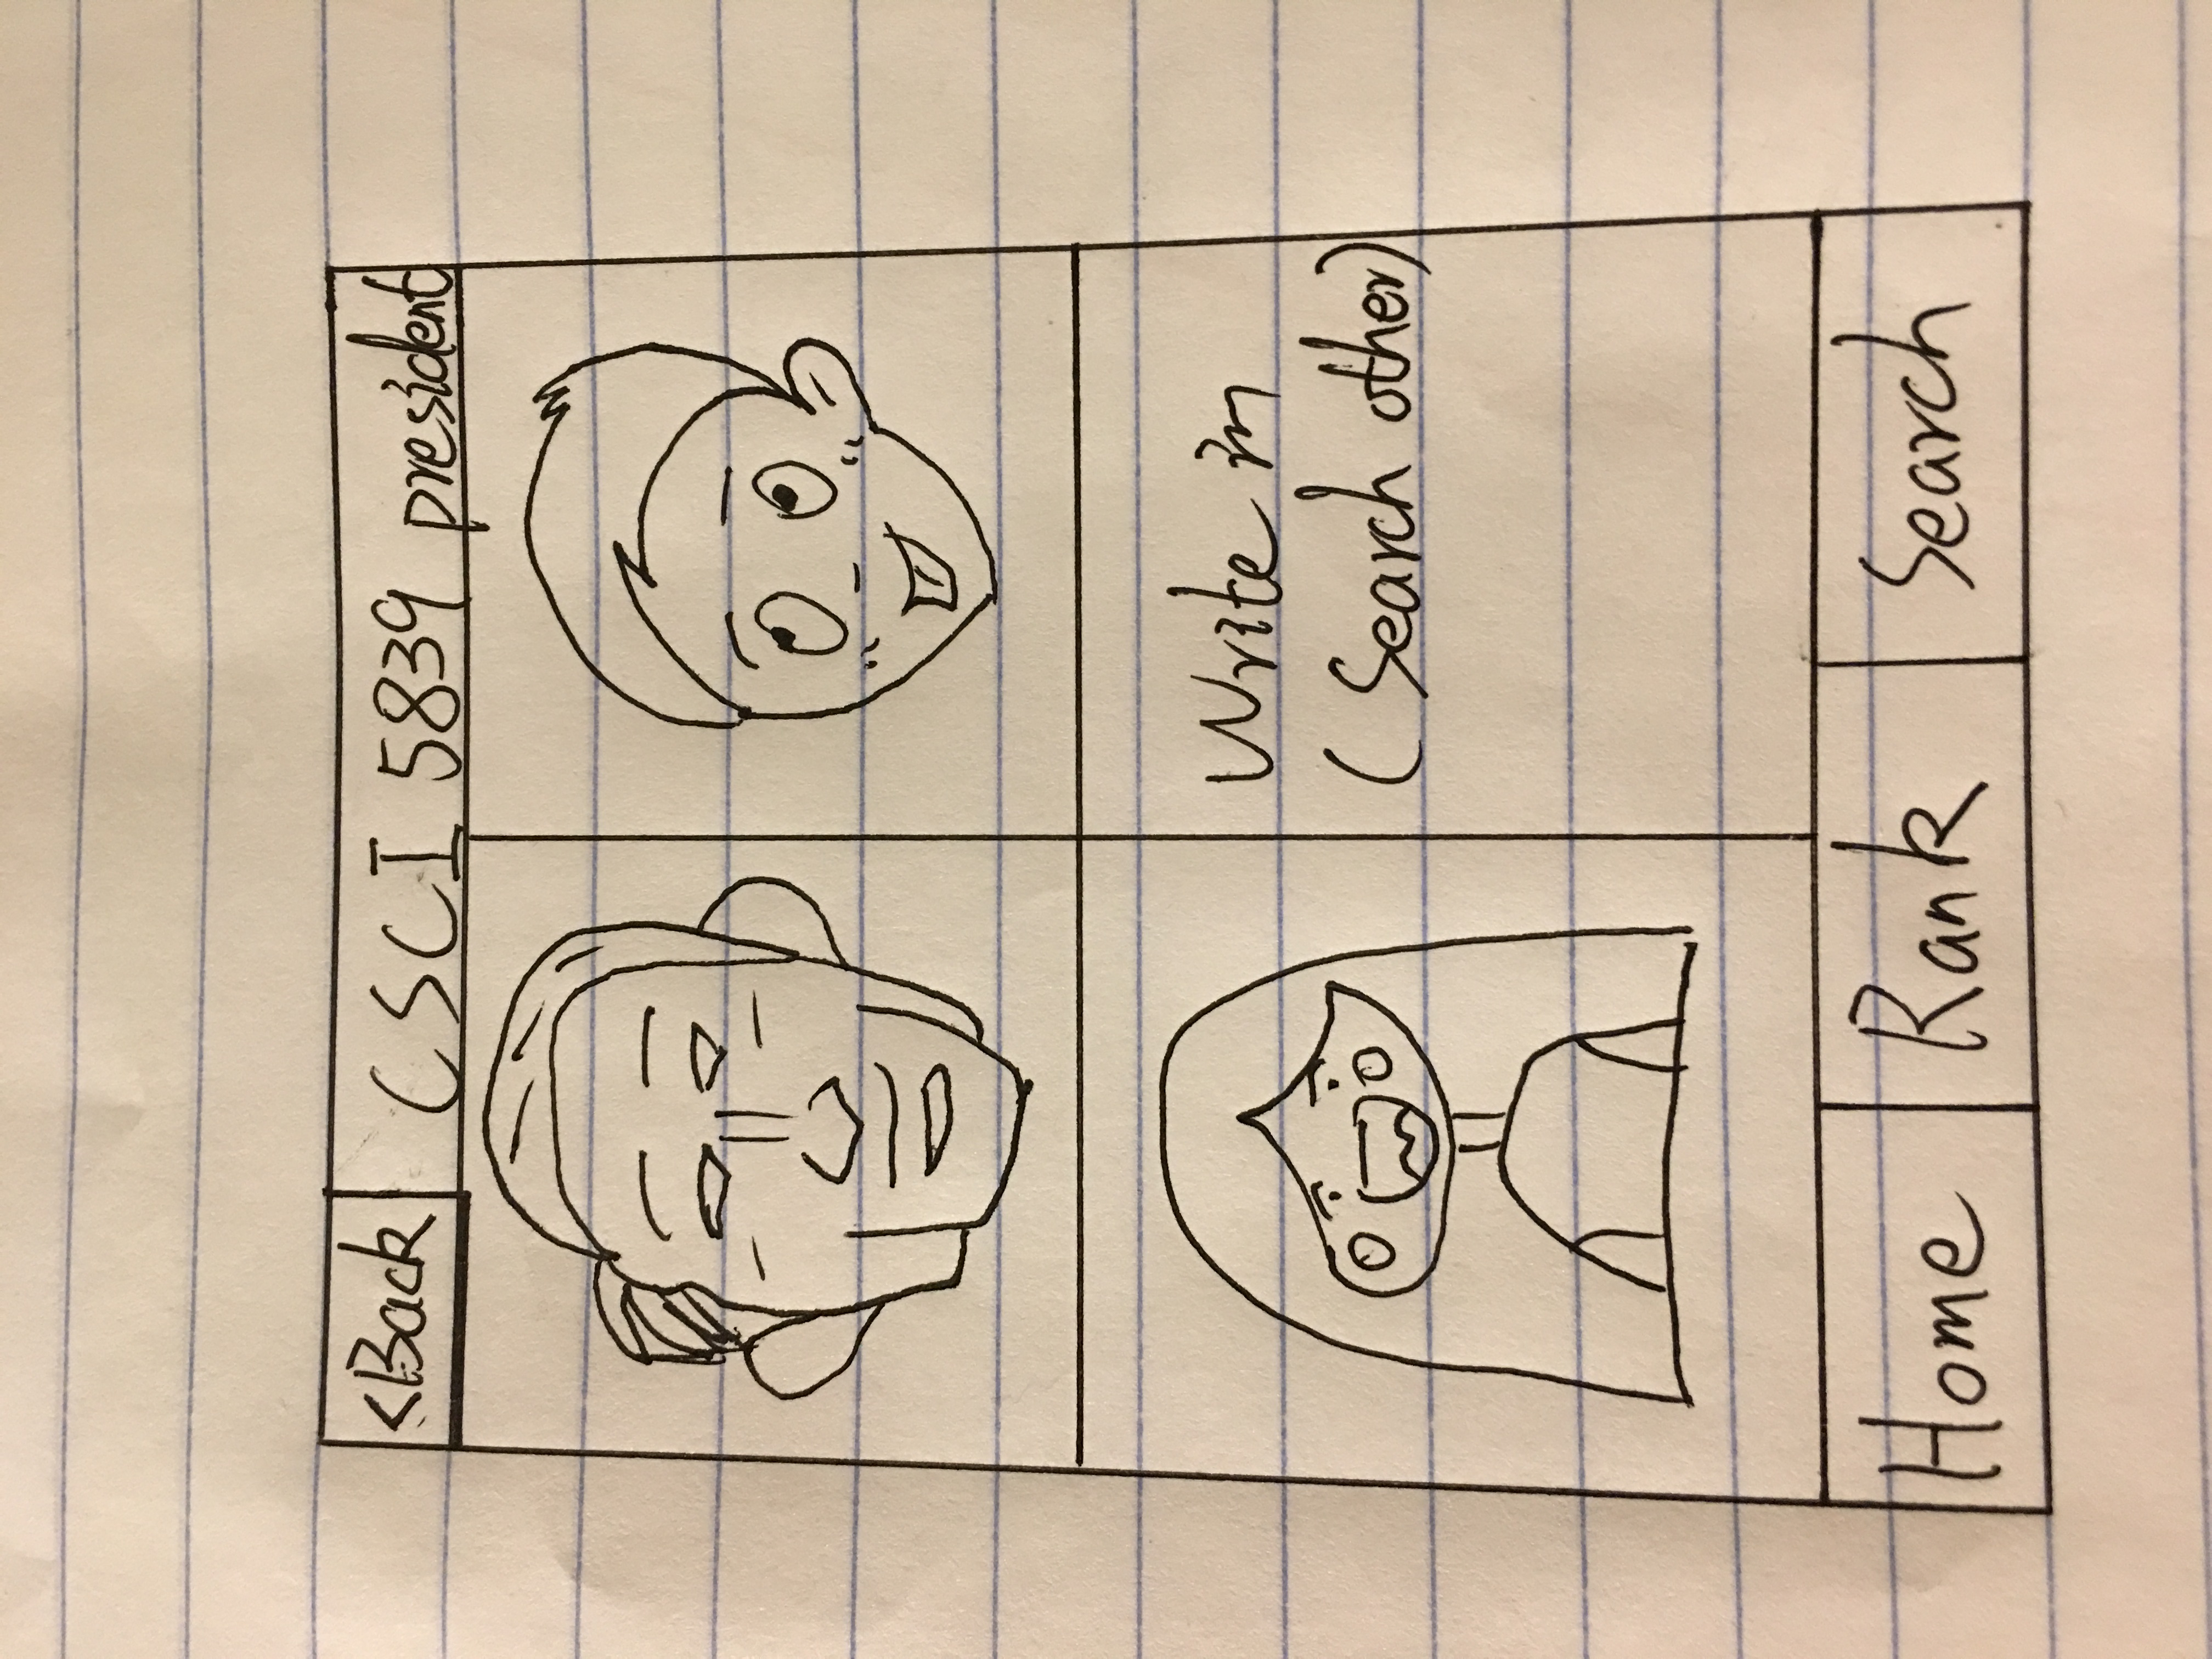 <Back CSCI 5839 president
Write in
(Search other)
Home Rank Search